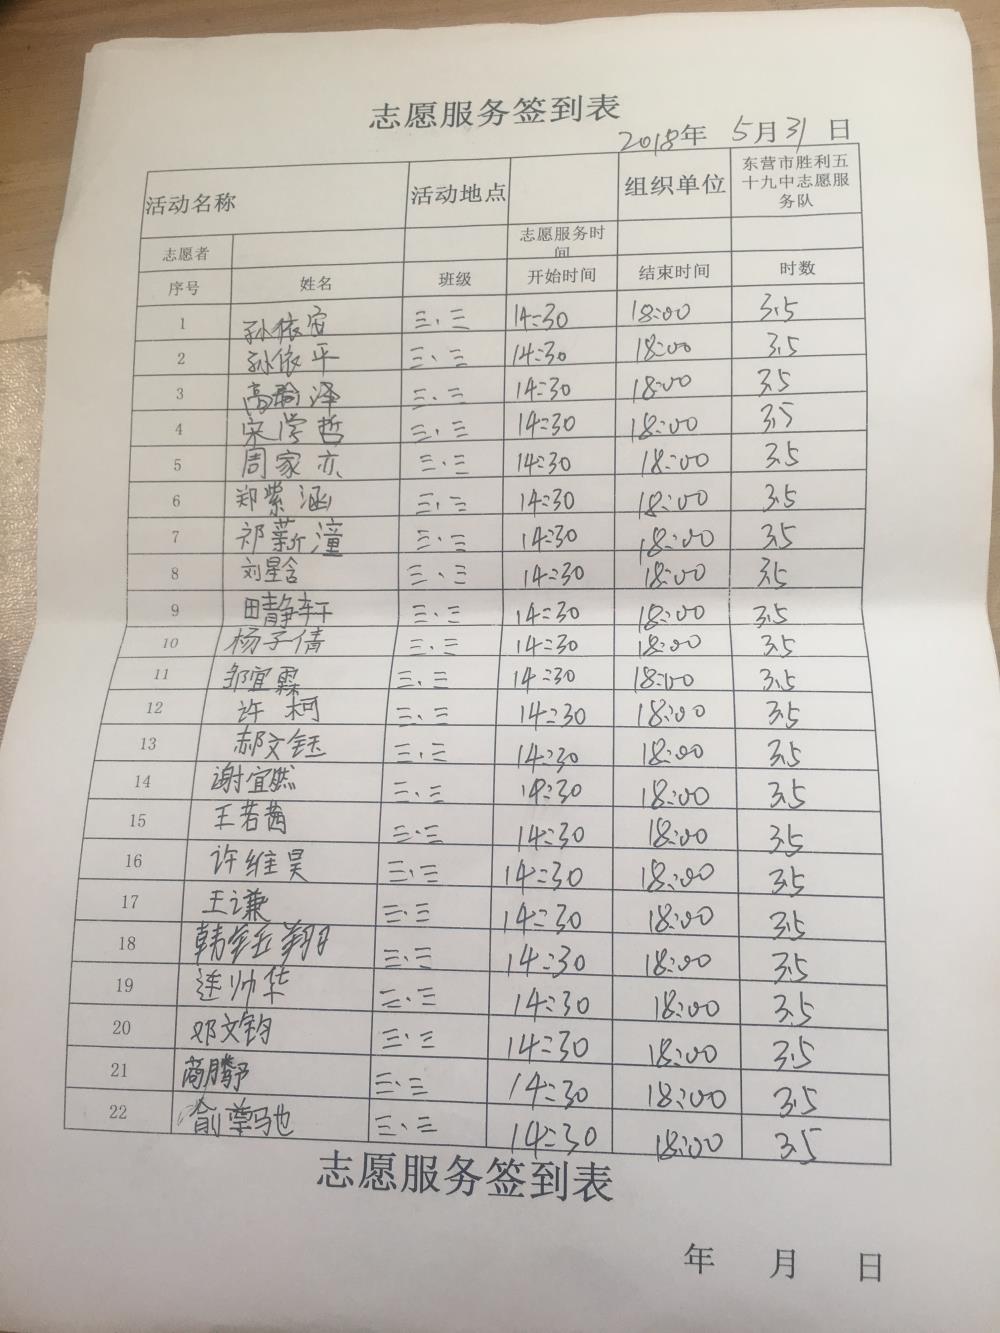 志愿服务签到表
2018年 5月31日
活动名称 活动地点 组织单位 东营市胜利五十九中志愿服务队
志愿者 志愿服务时间
序号 姓名 班级 开始时间 结束时间 时数
1 孙依宸 三、三 14:30 18:00 3.5
2 孙依平 三、三 14:30 18:00 3.5
3 高瑜泽 三、三 14:30 18:00 3.5
4 宋学哲 三、三 14:30 18:00 3.5
5 周家亦 三、三 14:30 18:00 3.5
6 郑紫涵 三、三 14:30 18:00 3.5
7 祁薪潼 三、三 14:30 18:00 3.5
8 刘星含 三、三 14:30 18:00 3.5
9 田静轩 三、三 14:30 18:00 3.5
10 杨子倩 三、三 14:30 18:00 3.5
11 邹宜霖 三、三 14:30 18:00 3.5
12 许柯 三、三 14:30 18:00 3.5
13 郝文钰 三、三 14:30 18:00 3.5
14 谢宜然 三、三 14:30 18:00 3.5
15 王若茜 三、三 14:30 18:00 3.5
16 许维昊 三、三 14:30 18:00 3.5
17 王谦 三、三 14:30 18:00 3.5
18 韩钰翔 三、三 14:30 18:00 3.5
19 逄帅华 三、三 14:30 18:00 3.5
20 邓文钧 三、三 14:30 18:00 3.5
21 商腾予 三、三 14:30 18:00 3.5
22 俞 驰 三、三 14:30 18:00 3.5
志愿服务签到表
年 月 日